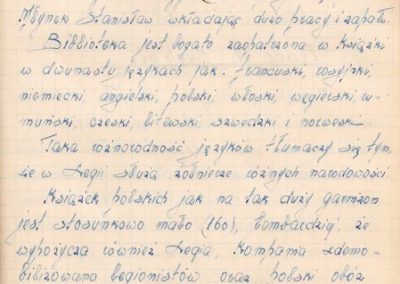 Młynek Stanisław wkładając dużo pracy i zapału.
Biblioteka jest bogato zaopatrzona w książki
w dwunastu językach jak: francuski, rosyjski,
niemiecki, angielski, polski, włoski, węgierski, ru-
muński, czeski, litewski, szwedzki i norweski.
Taka różnorodność języków tłumaczy się tym,
że w Legii służą żołnierze różnych narodowości.
Książek polskich jak na tak duży garnizon
jest stosunkowo mało (160), tembardziej, że
wypożycza również Legia, Kompania zdemo-
bilizowana legionistów oraz polski obóz